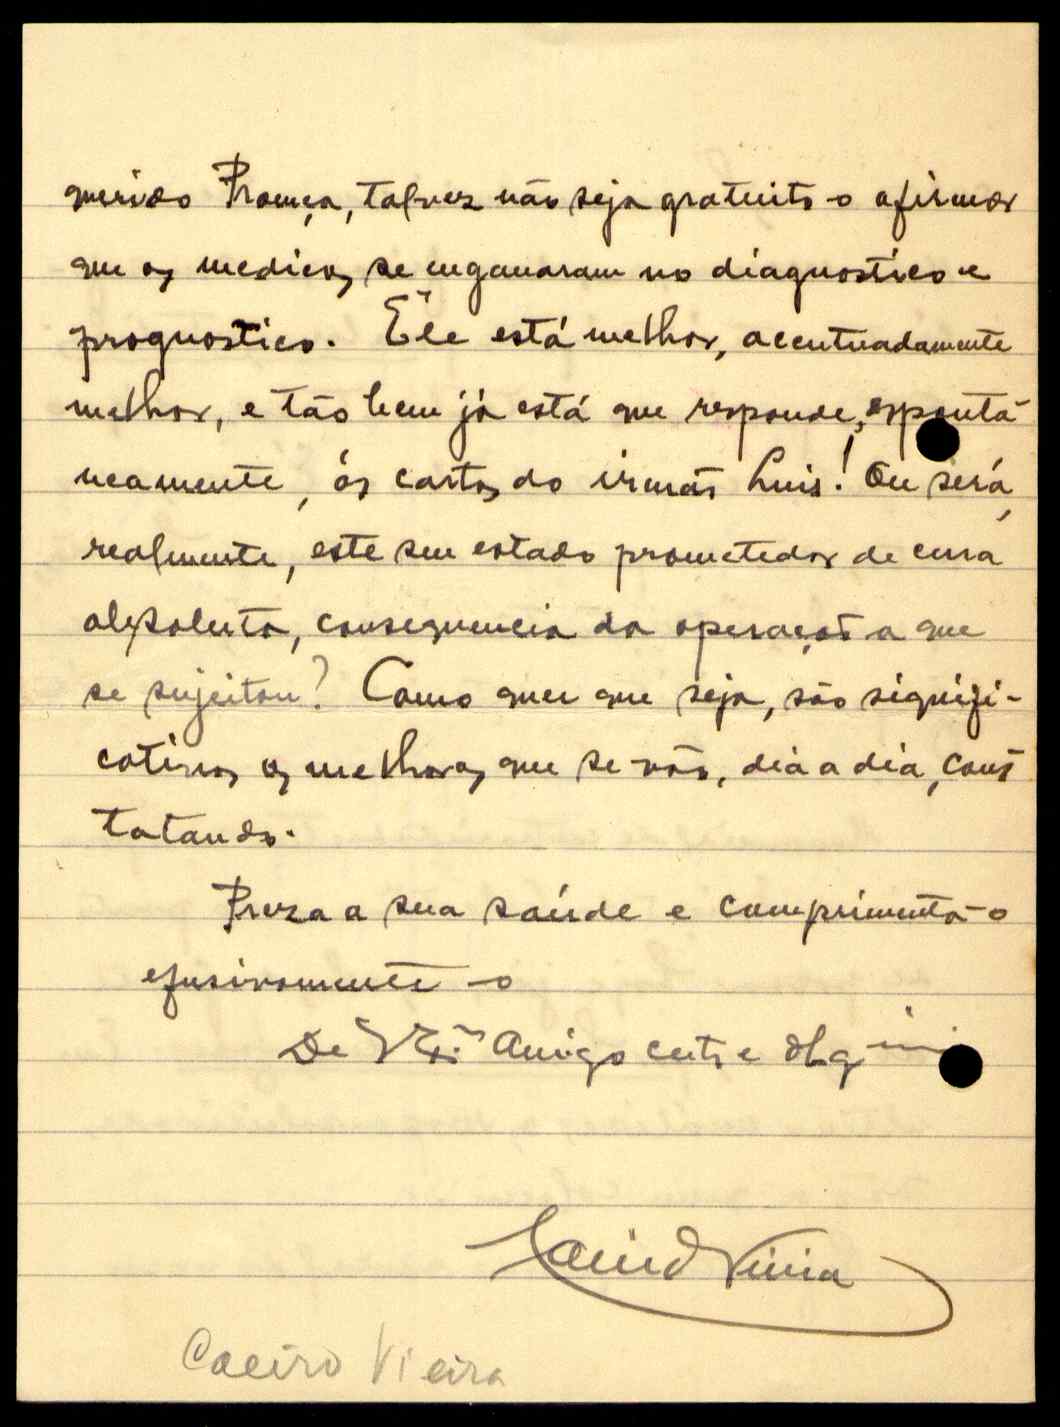 querido Proença, talvez não seja gratuito o afirmar
que os medicos se enganaram no diagnostico e
prognostico. Êle está melhor, acentuadamente
melhor, e tão bem já está que responde, espontâ-
neamente, ás cartas do irmão Luis! Ou será,
realmente, este seu estado prometedor de cura
absoluta, consequencia da operação a que
se sujeitou? Como quer que seja, são signifi-
cativas as melhoras que se vão, dia a dia, cons
tatando.
Preza a sua saúde e comprimenta-o
efusivamente o
De V. Ex.ª Amigo certo e obg
Vieira
Caeiro Vieira